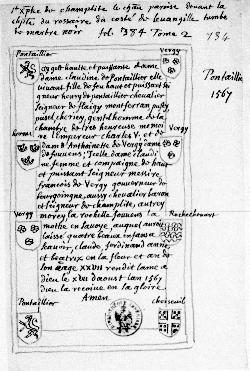 Xphe de champlite le chau parisse devant la
chplle du rossaire, du costé de levangille tumbe
de marbre noir fol. 384 Tome 2
784
Pontaillier Vergy
Cy gist haulte et puissante dame
dame claudine de Pontaillier elle
vivant fille de feu hault et puissant sei
gneur henry de pontailler chevalier
seigneur de flaigy montferran
gentilhomme de la
chambre de tres heureuse memoi
re lempereur charles V. et de
dame Anthoinette de Vergy dame
de fouvens; Icelle dame claudi
ne femme et compaigne de hault
et puissant seigneur messire
francois de Vergy gouverneur de
bourgoingne, aussy chevalier baron
et seigneur de champlite, autrey
morey la rochelle fouvens la
mothe en lavoye, auquel auroit
laissé quatre beaux infans a
scavoir claude, ferdinand anne
et beatrix en la fleur et an de
son eage XXVII rendit lame a
dieu le XVI daoust lan 1567
dieu la recoive en la gloire
Amen
Pontaillier
1567
Vergy
Vergy
Rochechouart
Pontaillier
choiseuil